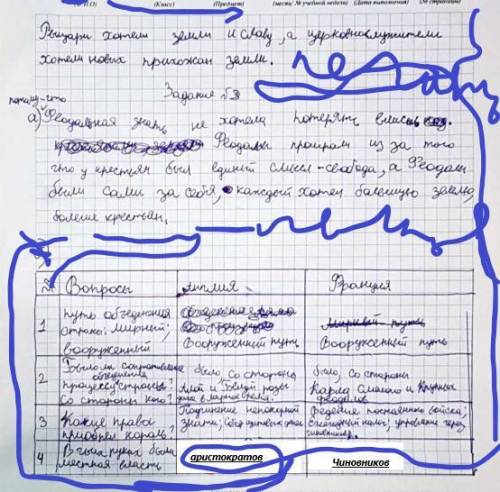 (Класс) (Предмет) (месяц/ № учебной недели) (Дата выполнения) (№ страницы)
Рыцари хотели земли и славу, а церковнослужители
хотели новых прихожан земли.
Задание №3
потому-что
а) Феодальная знать не хотела потерять власть
Феодалы проиграли из за того
что у крестьян был единый смысл-свобода, а Феодалы
были сами за себя, каждый хотел большую землю,
больше крестьян.
№ Вопросы Англия Франция
1 путь объединения страны: мирный; вооруженный
Вооруженный путь
Вооруженный путь
2 Было ли сопротивление процессу объединения страны? Со стороны кого?
было со стороны знати
было, со стороны Карла Смелого и Крупных феодалов
3 Какие права приобрел король?
Подчинение непокорной знати;
постоянного войска; налог;
4 В чьих руках была местная власть
аристократов
Чиновников